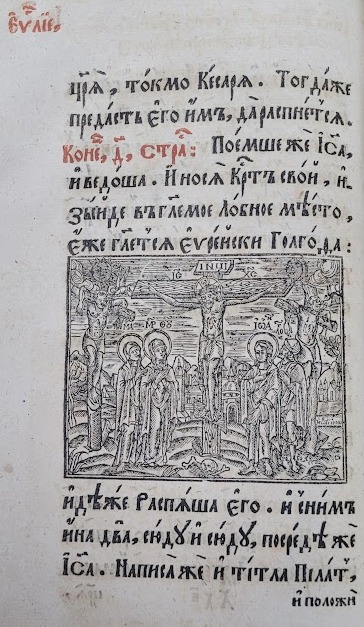 Еѵⷢ҇лїе,
цр҃ѧ̀, то́кмо Ке́сарѧ. Тогда́же
преда́сть є҆го̀ и҆́мъ, да̀распне́тсѧ.
Коне́, д҃, Стра́: Пое́мше же І҆с҃а,
и҆ ведо́ша. И҆ носѧ̀ Крⷭ҇тъ сво́й, и҆
зы́йде въ гл҃емое Ло́бное мѣ́сто,
є҆́же гл҃етсѧ Е҆ѵре́йски Голго́ѳа:
ІНЦІ
ІС ХС
МР ѲУ
ІѠА
и҆дѣ́же Распѧ́ша є҆го̀. и҆ сни́мъ
и҆́на два̀, сю́ду и҆ сю́ду, посредѣ́ же
І҆с҃а. Написа́ же и҆ ті́тла Пїла́т,
и҆ положѝ